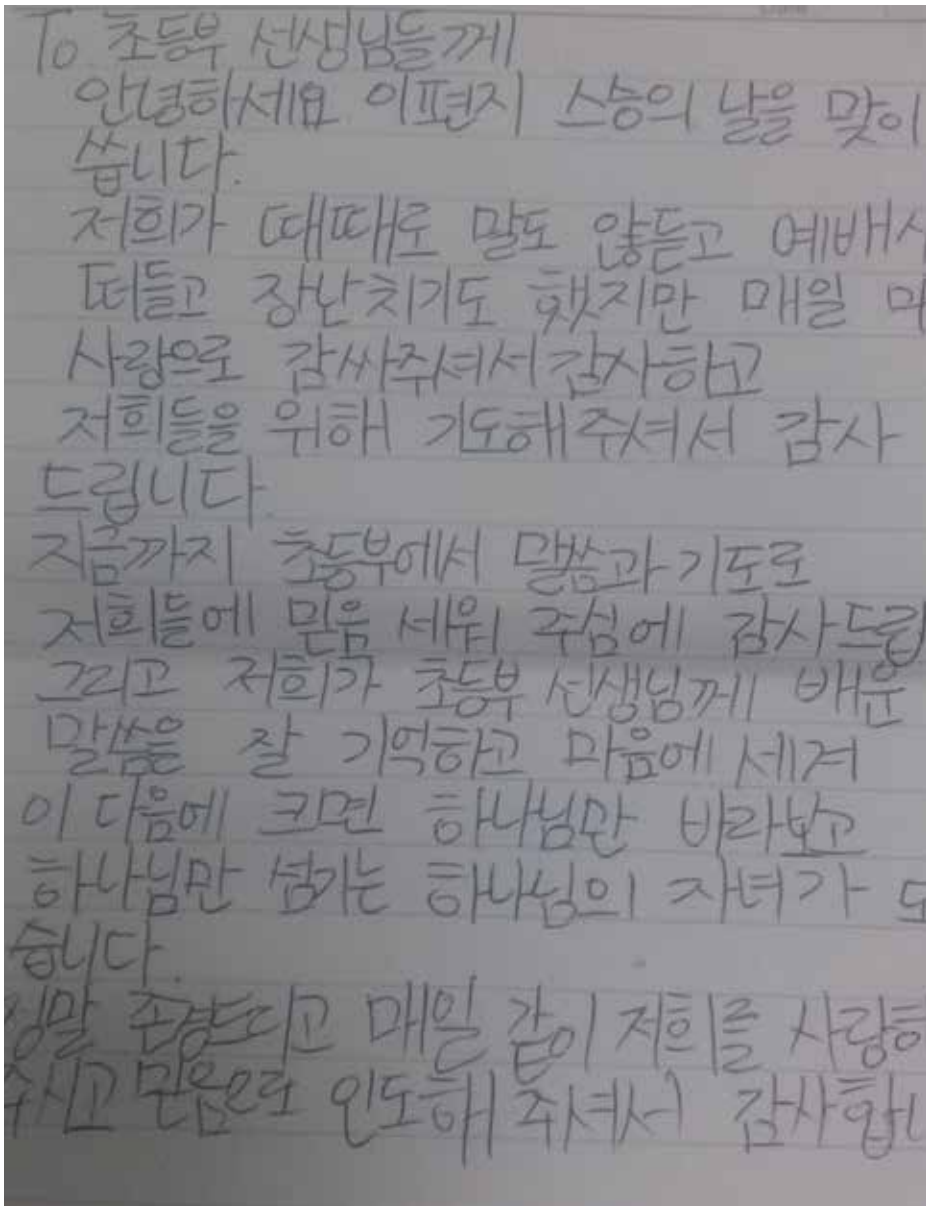 To 초등부 선생님들께
안녕하세요 이편지 스승의 날을 맞이
씁니다.
저희가 때때로 말도 않듣고 예배시
떠들고 장난치기도 했지만 매일
사랑으로 감싸주셔서 감사하고
저희들을 위해 기도해주셔서 감사
드립니다.
지금까지 초등부에서 말씀과 기도로
저희들에 믿음 세워 주심에 감사드립
그리고 저희가 초등부 선생님께 배운
말씀을 잘 기억하고 마음에 세겨
이 다음에 크면 하나님만 바라보고
하나님만 섬기는 하나님의 자녀가
습니다.
정말 존경드리고 매일 같이 저희를 사랑하
주시고 믿음으로 인도해 주셔서 감사합니